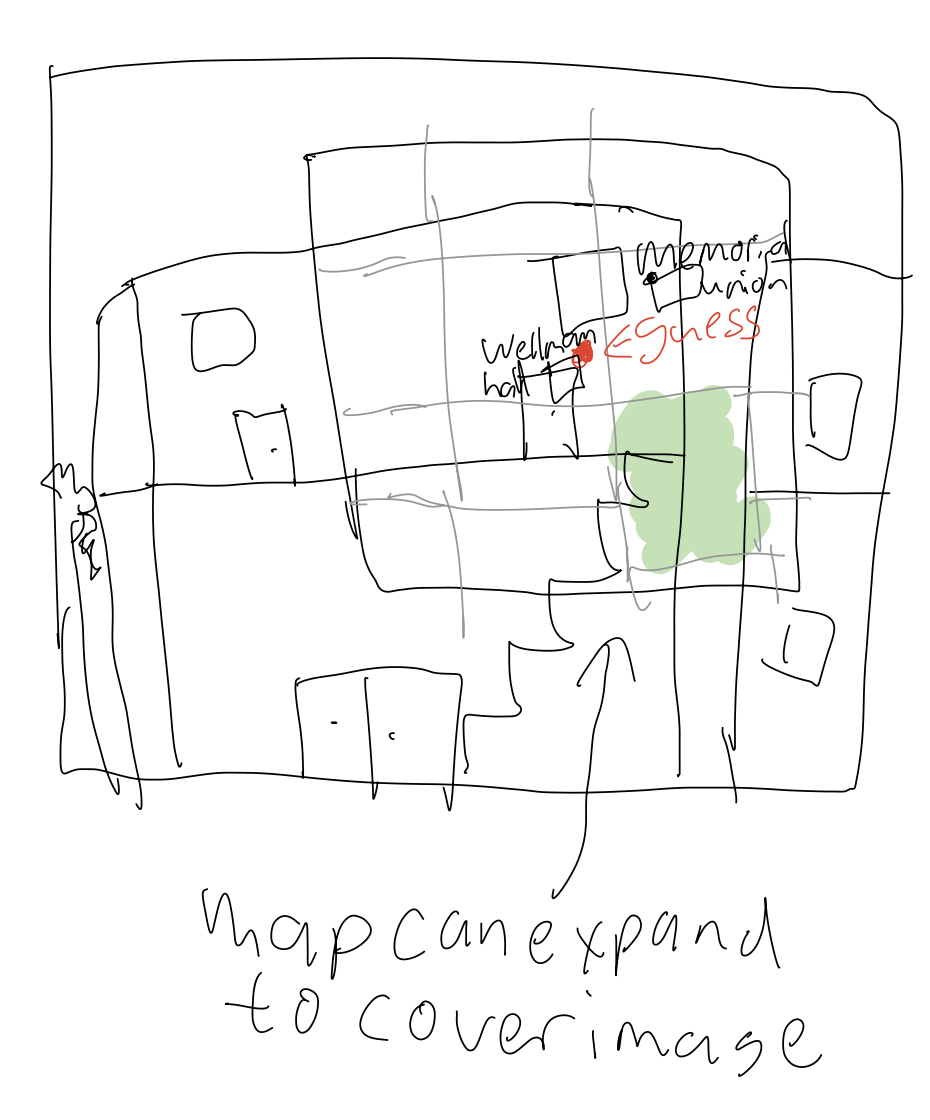 Memorial
union
Wellman
hall
guess
map can expand
to cover image